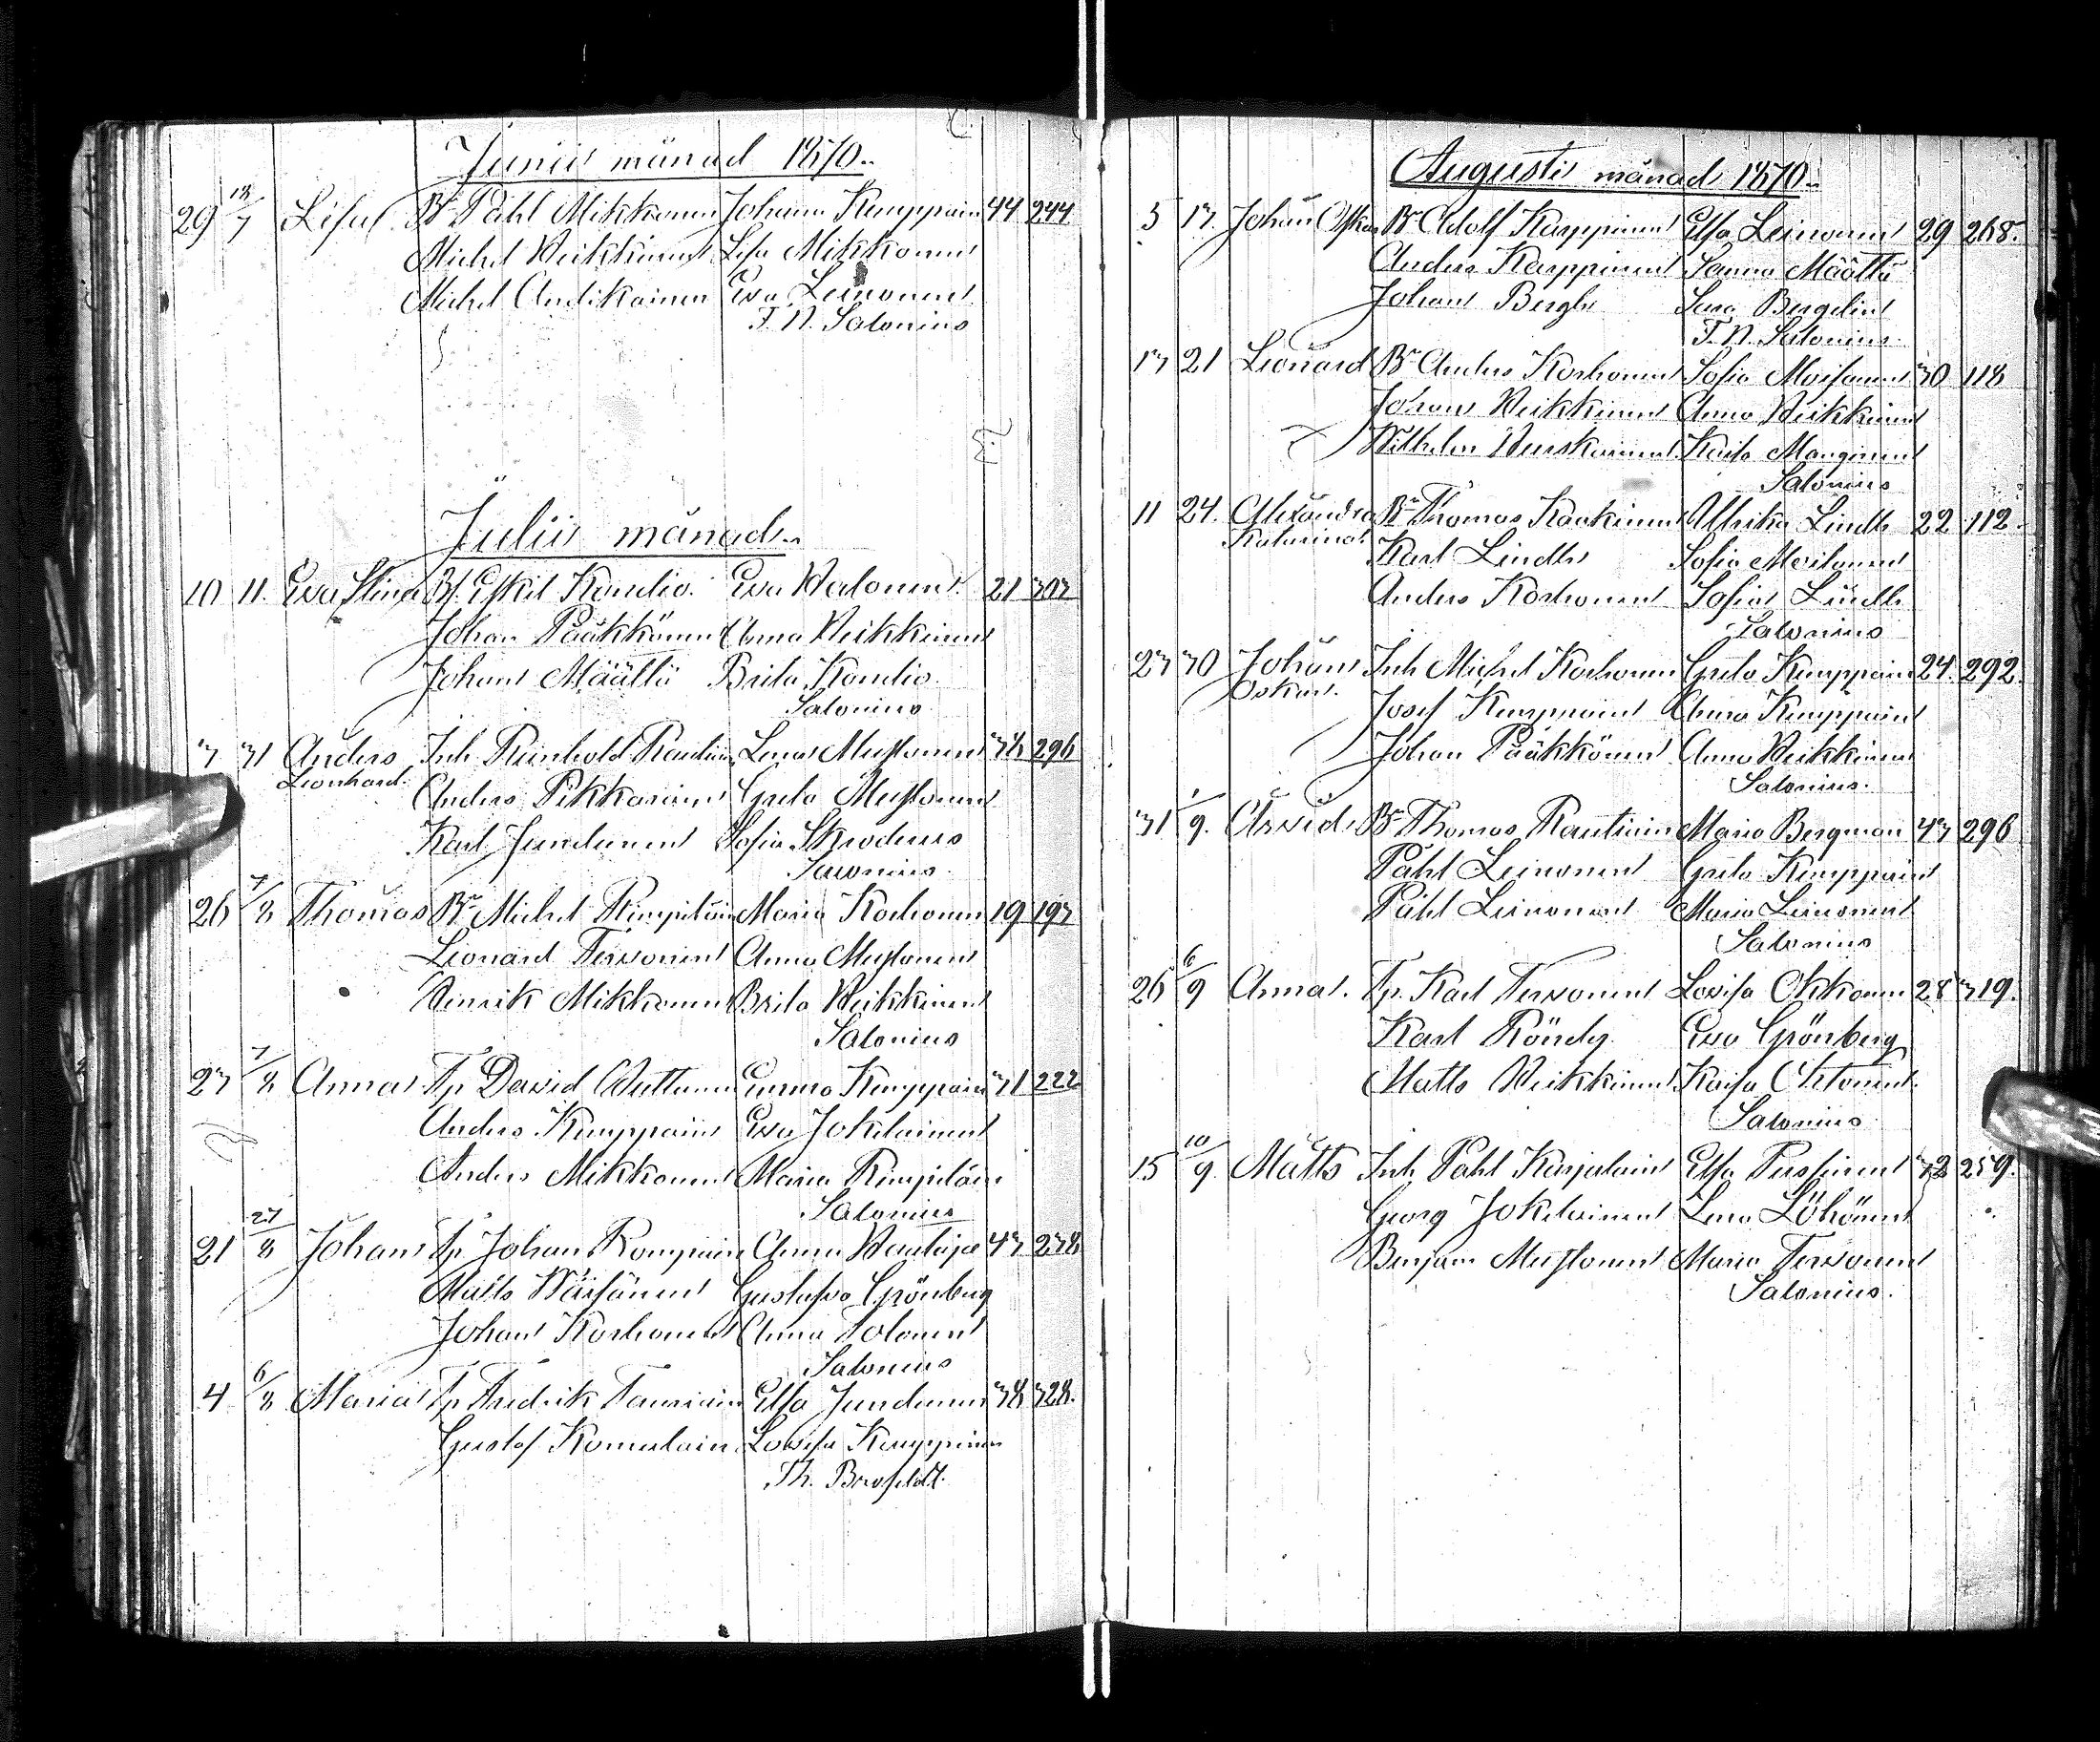 Junii månad 1870.
29 18/7 Lisa Bd Påhl Mikkonen Johanna Kemppain 44 244
Michel Veikkinen Lisa Mikkonen
Michel Andikainen Eva Leinonen
F. N. Salonius
Julii månad
10 11. Eva Stina Bd. Eskil Kandio. Eva Valonen. 21 303
Johan Pääkkönen Anna Veikkinen
Johan Määttä Brita Kandio
Salonius
3 31 Anders Inh Reinhold Rautiain Lena Mustonen 38 296
Leonhard. Anders Pikkarainen Greta Mustonen
Karl Juntunen Sofia Skroderus
Salonius
26 7/8 Thomas Bd Michel Rimpiläin Maria Korhonen 19 193
Leonard Tervonen Anna Mustonen
Henrik Mikkonen Brita Veikkinen
Salonius
23 7/8 Anna Tp David Kemppain 31 222
Anders Kemppain Eva Jokelainen
Anders Mikkonen Maria Rimpiläin
Salonius
21 27/8 Johan Tp Johan Romppain Anna 43 238
Matts Väisänen Gustafva Grönberg
Johan Korhonen Anna Tolonen
Salonius
4 6/8 Maria Tp Fredrik Tauriain Elsa Juntunen 38 328.
Gustaf Komulain Lovisa Kemppinen
Th. Brofeldt.
Augusti månad 1870.
5 13. Johan Oskar Bd Adolf Karppinen Elsa Leinonen 29 268.
Anders Karppinen Sanna Määttä
Johan Bergh Sara Bergelin
F. N. Salonius.
13 21 Leonard Bd Anders Korhonen Sofia Moisanen 30 118
Johan Veikkinen Anna Veikkinen
Wilhelm Kaisa Manninen
Salonius
11 24. Alexandra Bd Thomas Kaakinen Ulrika Lindh 22 112.
Katarina Karl Lindh Sofia Moilanen
Anders Korhonen Sofia Lindh
Salonius
23 30 Johan Inh Michel Korhonen Greta Kemppain 24. 292.
Oskar. Josef Kemppainen Anna Kemppain
Johan Pääkkönen Anna Veikkinen
Salonius.
31 1/9. Arvid Bd Thomas Rautiain Maria Bergman 43 296
Påhl Leinonen Greta Kemppain
Påhl Leinonen Maria Leinonen
Salonius
26 6/9 Anna. Tp. Karl Tervonen Lovisa Okkonen 28 319.
Karl Röndy Eva Grönberg
Matts Veikkinen Kaisa
Salonius
15 10/9. Matts Inh Påhl Karjalain Elsa Pursinen 32 259.
Georg Jokelainen Lena Löhönen
Benjam Mustonen Maria Tervonen
Salonius.